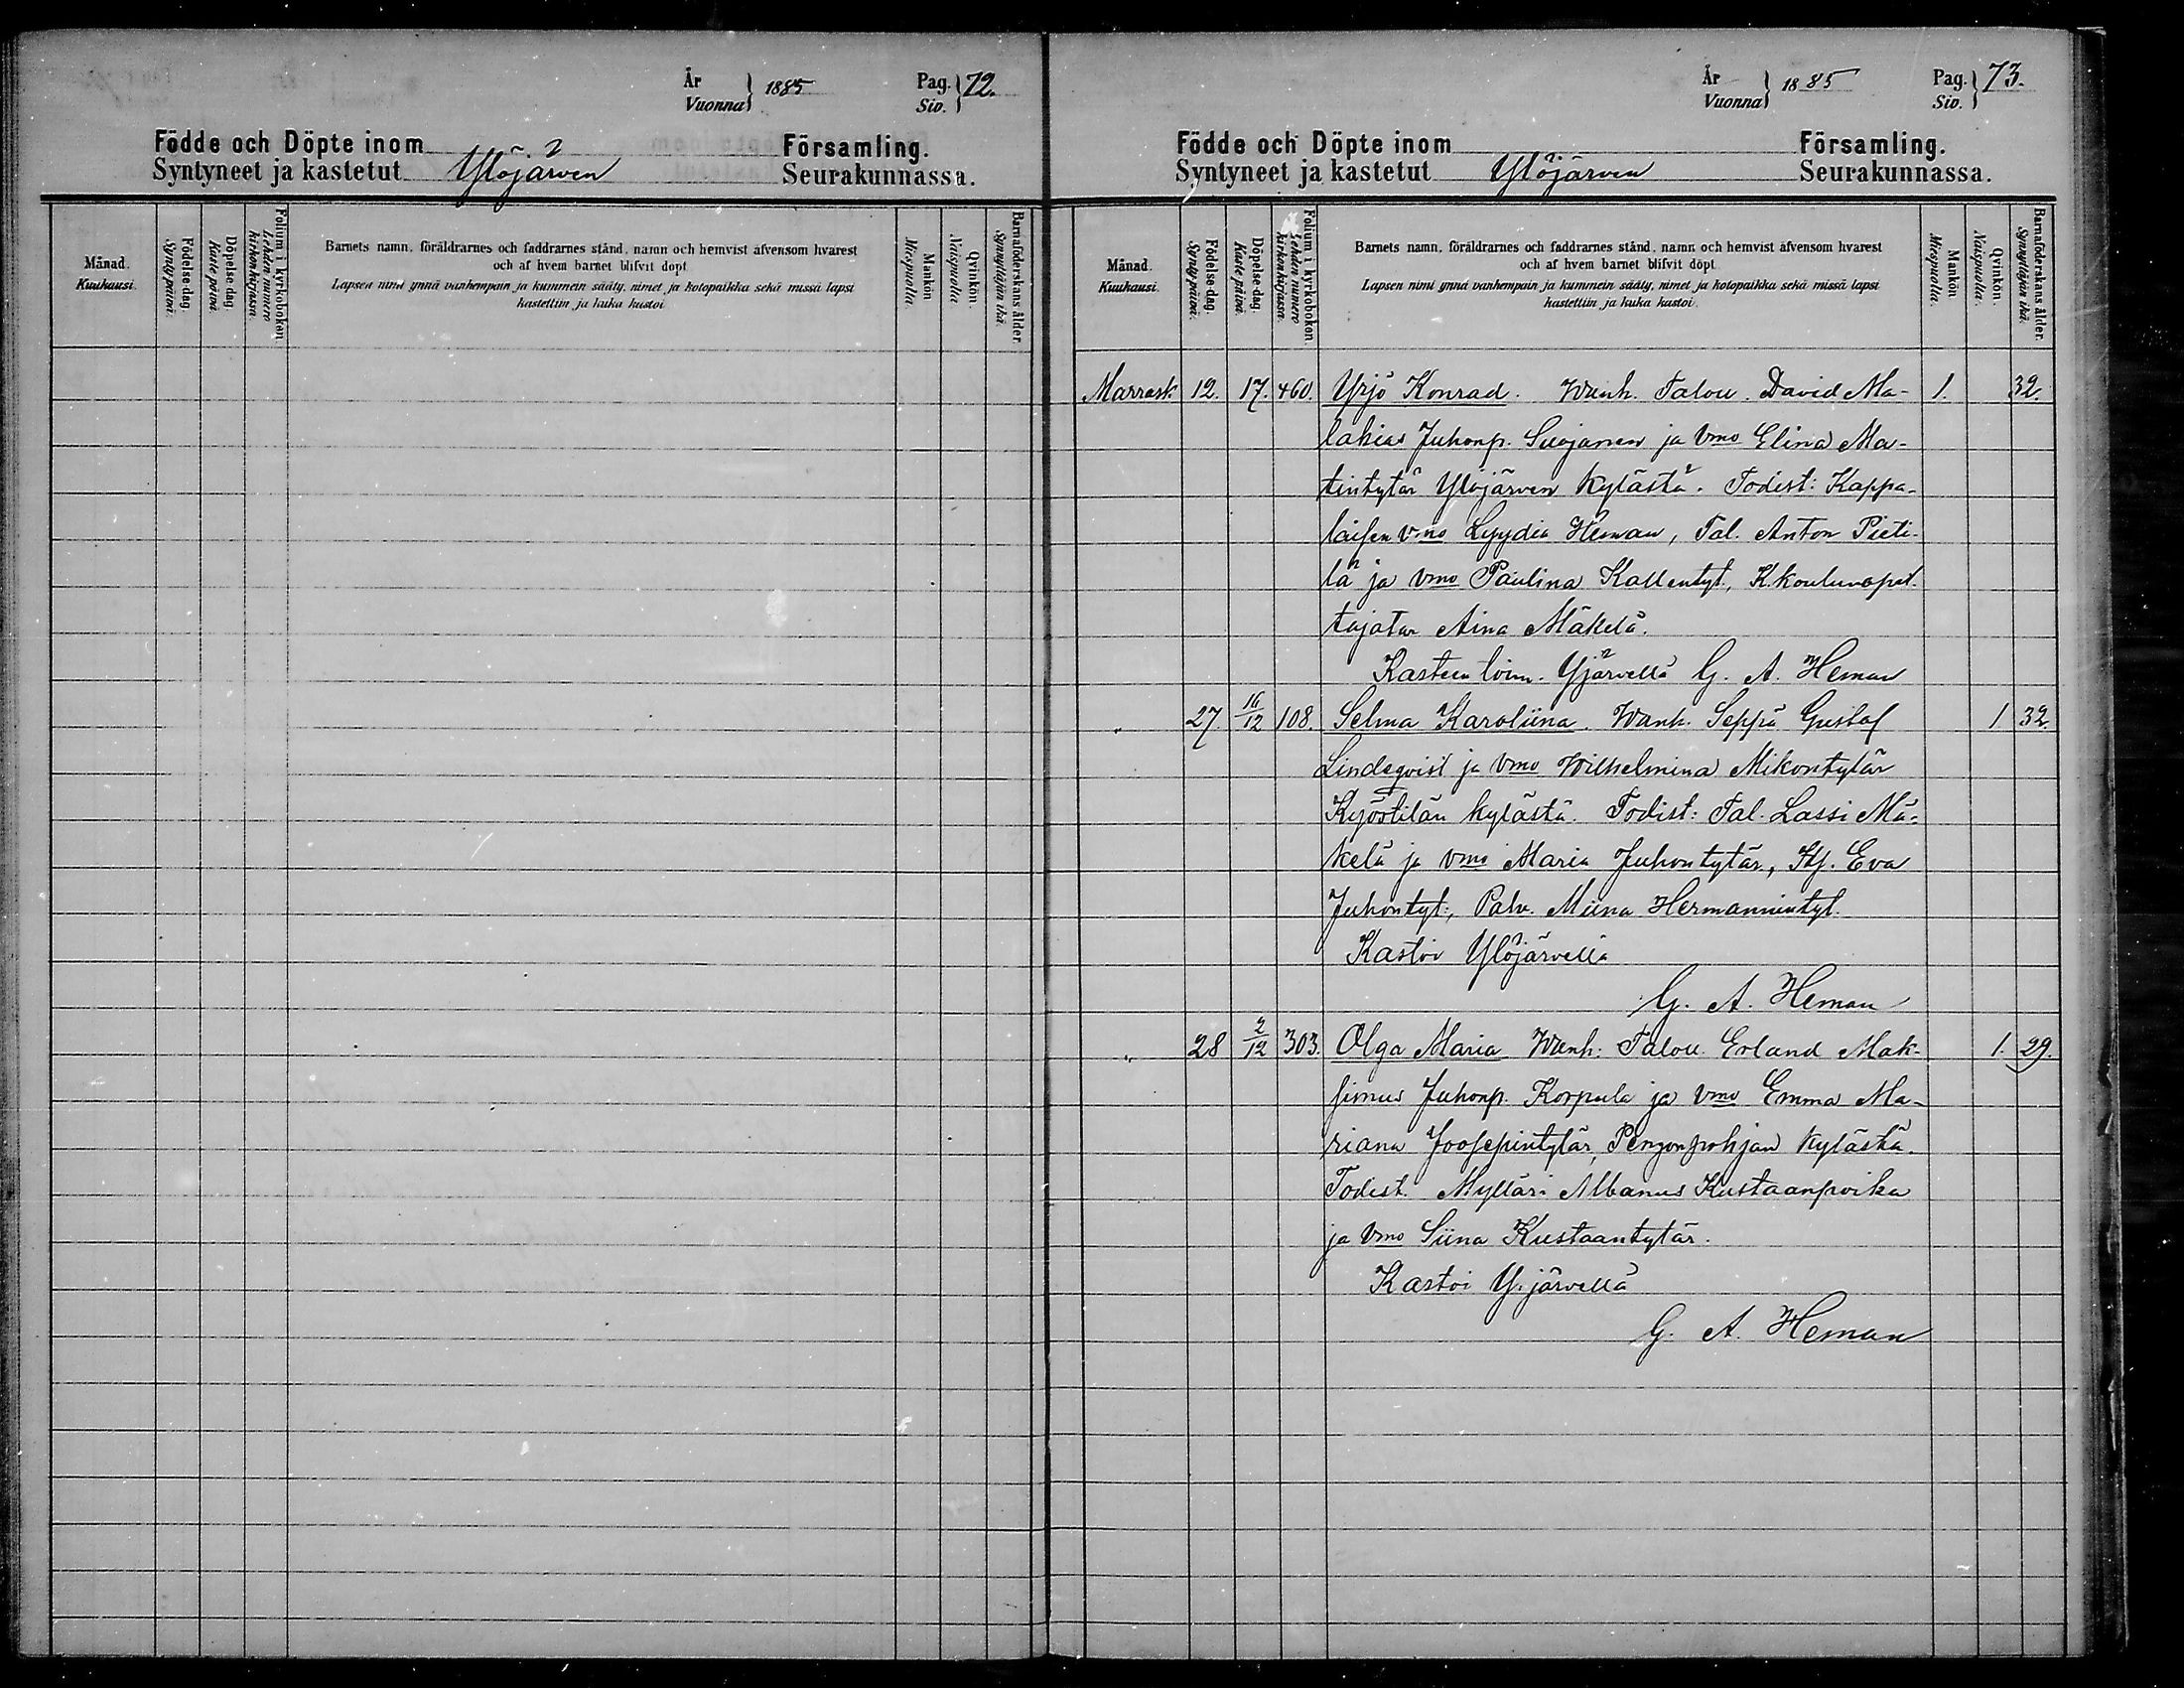 År
Vuonna } 1885 Pag. Siv. } 72.
Födde och Döpte inom Församling.
Syntyneet ja kastetut Ylöjärven Seurakunnassa.
Månad.
Kuukausi.
Födelse-dag.
Synty-päivä.
Döpelse-dag.
Kaste-päivä.
Folium i kyrkoboken.
Lehden numero
kirkonkirjassa.
Barnets namn, föräldrarnes och faddrarnes stånd, namn och hemvist äfvensom hvarest
och af hvem barnet blifvit döpt.
Lapsen nimi ynnä vanhempain ja kummein sääty, nimet ja kotopaikka sekä missä lapsi
kastettiin ja kuka kastoi.
Mankön
Miespuolia.
Qvinkön.
Naispuolia.
Barnaföderskans ålder.
Synnyttäjän ikä.
År
Vuonna } 1885 Pag. Siv. } 73.
Födde och Döpte inom Församling.
Syntyneet ja kastetut Ylöjärven Seurakunnassa.
Månad.
Kuukausi.
Födelse-dag.
Synty-päivä.
Döpelse-dag.
Kaste-päivä.
Folium i kyrkoboken.
Lehden numero
kirkonkirjassa.
Barnets namn, föräldrarnes och faddrarnes stånd, namn och hemvist äfvensom hvarest
och af hvem barnet blifvit döpt.
Lapsen nimi ynnä vanhempain ja kummein sääty, nimet ja kotopaikka sekä missä lapsi
kastettiin ja kuka kastoi.
Mankön
Miespuolia.
Qvinkön.
Naispuolia.
Barnaföderskans ålder.
Synnyttäjän ikä.
Marrask. 12. 17. 460. Yrjö Konrad. Wanh. Talou. David Ma- 1. 32.
lakias Juhonp. Suojanen ja vmo Elina Ma-
tintytär Ylöjärven kylästä. Todist: Kappa-
laisen v:mo Lyydia Heman, Tal. Anton Pieti-
lä ja vmo Paulina Kallentyt., K.koulunopet-
tajatar Aina Mäkelä.
Kasteen toim. Yjärvellä G. A. Heman
" 27. 16/12 108. Selma Karoliina. Wanh. Seppä Gustaf 1 32.
Lindeqvist ja vmo Wilhelmina Mikontytär
Kyöstilän kylästä. Todist: Tal. Lassi Mä-
kelä ja vmo Maria Juhontytär, Itj. Eva
Juhontyt:, Palv. Miina Hermannintyt.
Kastoi Ylöjärvellä
G. A. Heman
" 28 2/12 303. Olga Maria Wanh: Talou. Erland Mak- 1. 29.
simus Juhonp. Korpula ja vmo Emma Ma-
riana Joosepintytär, Pengonpohjan kylästä.
Todist. Mylläri Albanus Kustaanpoika
ja vmo Siina Kustaantytär.
Kastoi Y.järvellä
G. A. Heman